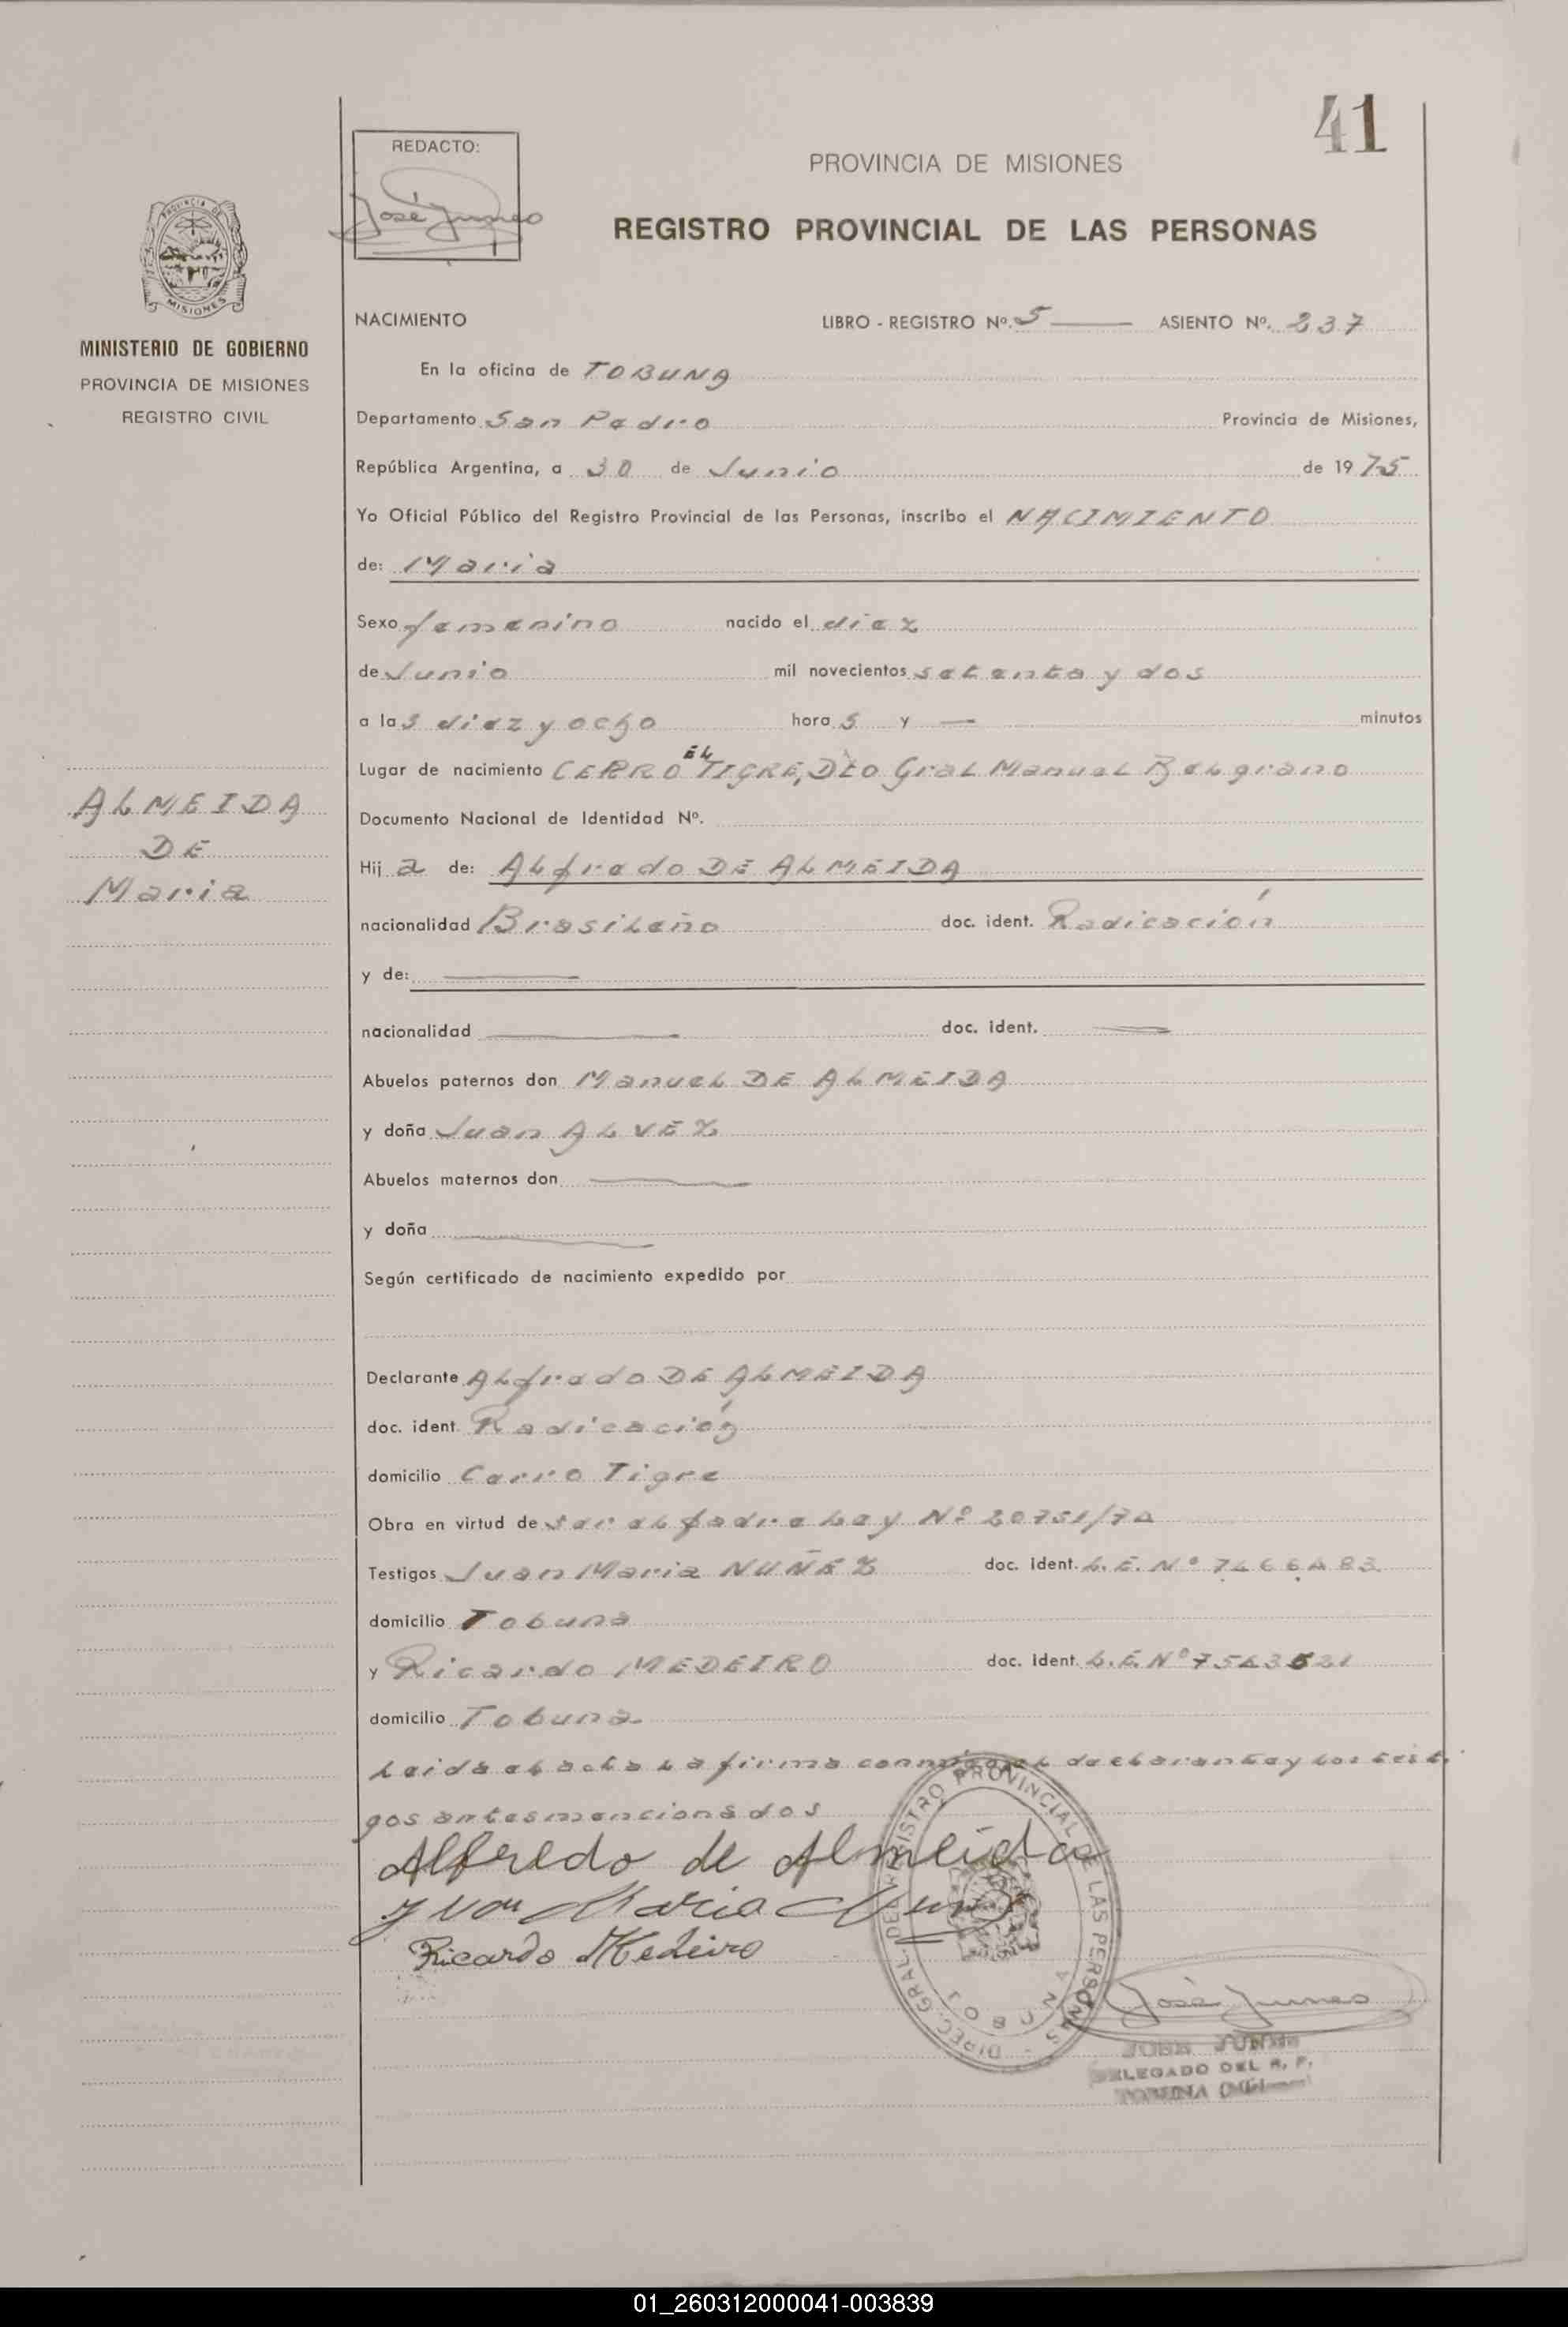 41
REDACTO:
José Junes
PROVINCIA DE MISIONES
REGISTRO PROVINCIAL DE LAS PERSONAS
PROVINCIA DE
MISIONES
MINISTERIO DE GOBIERNO
PROVINCIA DE MISIONES
REGISTRO CIVIL
ALMEIDA
DE
Maria
NACIMIENTO LIBRO - REGISTRO Nº. 5 ASIENTO Nº. 237
En la oficina de TOBUNA
Departamento San Pedro Provincia de Misiones,
República Argentina, a 30 de Junio de 1975
Yo Oficial Público del Registro Provincial de las Personas, inscribo el NACIMIENTO
de: Maria
Sexo femenino nacido el diez
de Junio mil novecientos setenta y dos
a las diez y ocho horas y — minutos
Lugar de nacimiento CERRO EL TIGRE, Dto Gral Manuel Belgrano
Documento Nacional de Identidad Nº.
Hija de: Alfredo DE ALMEIDA
nacionalidad Brasileño doc. ident. Radicación
y de: —
nacionalidad — doc. ident. —
Abuelos paternos don Manuel DE ALMEIDA
y doña Juan ALVEZ
Abuelos maternos don —
y doña —
Según certificado de nacimiento expedido por
Declarante Alfredo DE ALMEIDA
doc. ident. Radicación
domicilio Cerro Tigre
Obra en virtud de ser el padre Ley Nº 20751/74
Testigos Juan Maria NUÑEZ doc. ident. L.E. Nº 7466483
domicilio Tobuna
y Ricardo MEDEIRO doc. ident. L.E. Nº 7543521
domicilio Tobuna
Leida el acta la firma conmigo el declarante y los testi
gos antes mencionados
Alfredo de Almeida
Juan Maria Nuñez
Ricardo Medeiro
DIREC. GRAL. DEL REGISTRO PROVINCIAL DE LAS PERSONAS
TOBUNA
José Junes
JOSE JUNES
DELEGADO DEL R. P.
TOBUNA (Misiones)
01_260312000041-003839